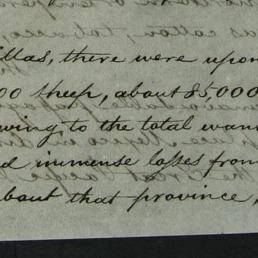 llas, there were upon
00 sheep, about 85,000
wing to the total wan
d immense losses from
about that province,